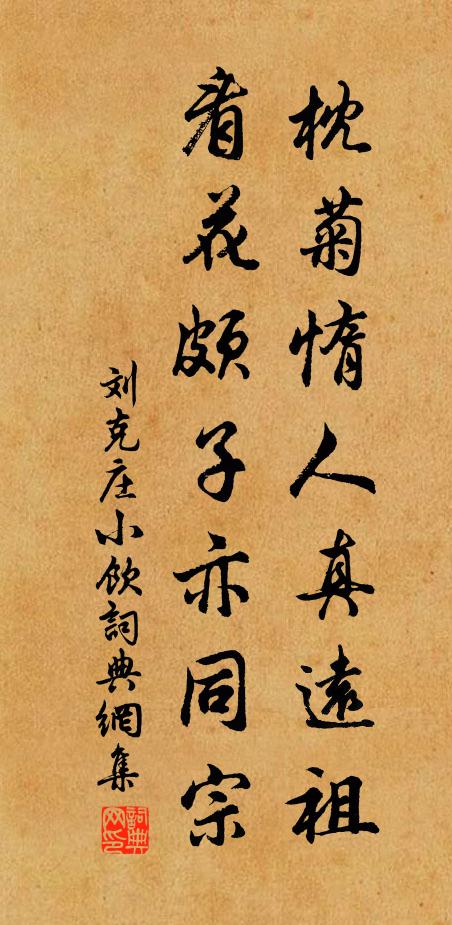 枕菊惰人真遠祖
看花頗子亦同宗
刘克庄小飲詞典網集
詞典网印